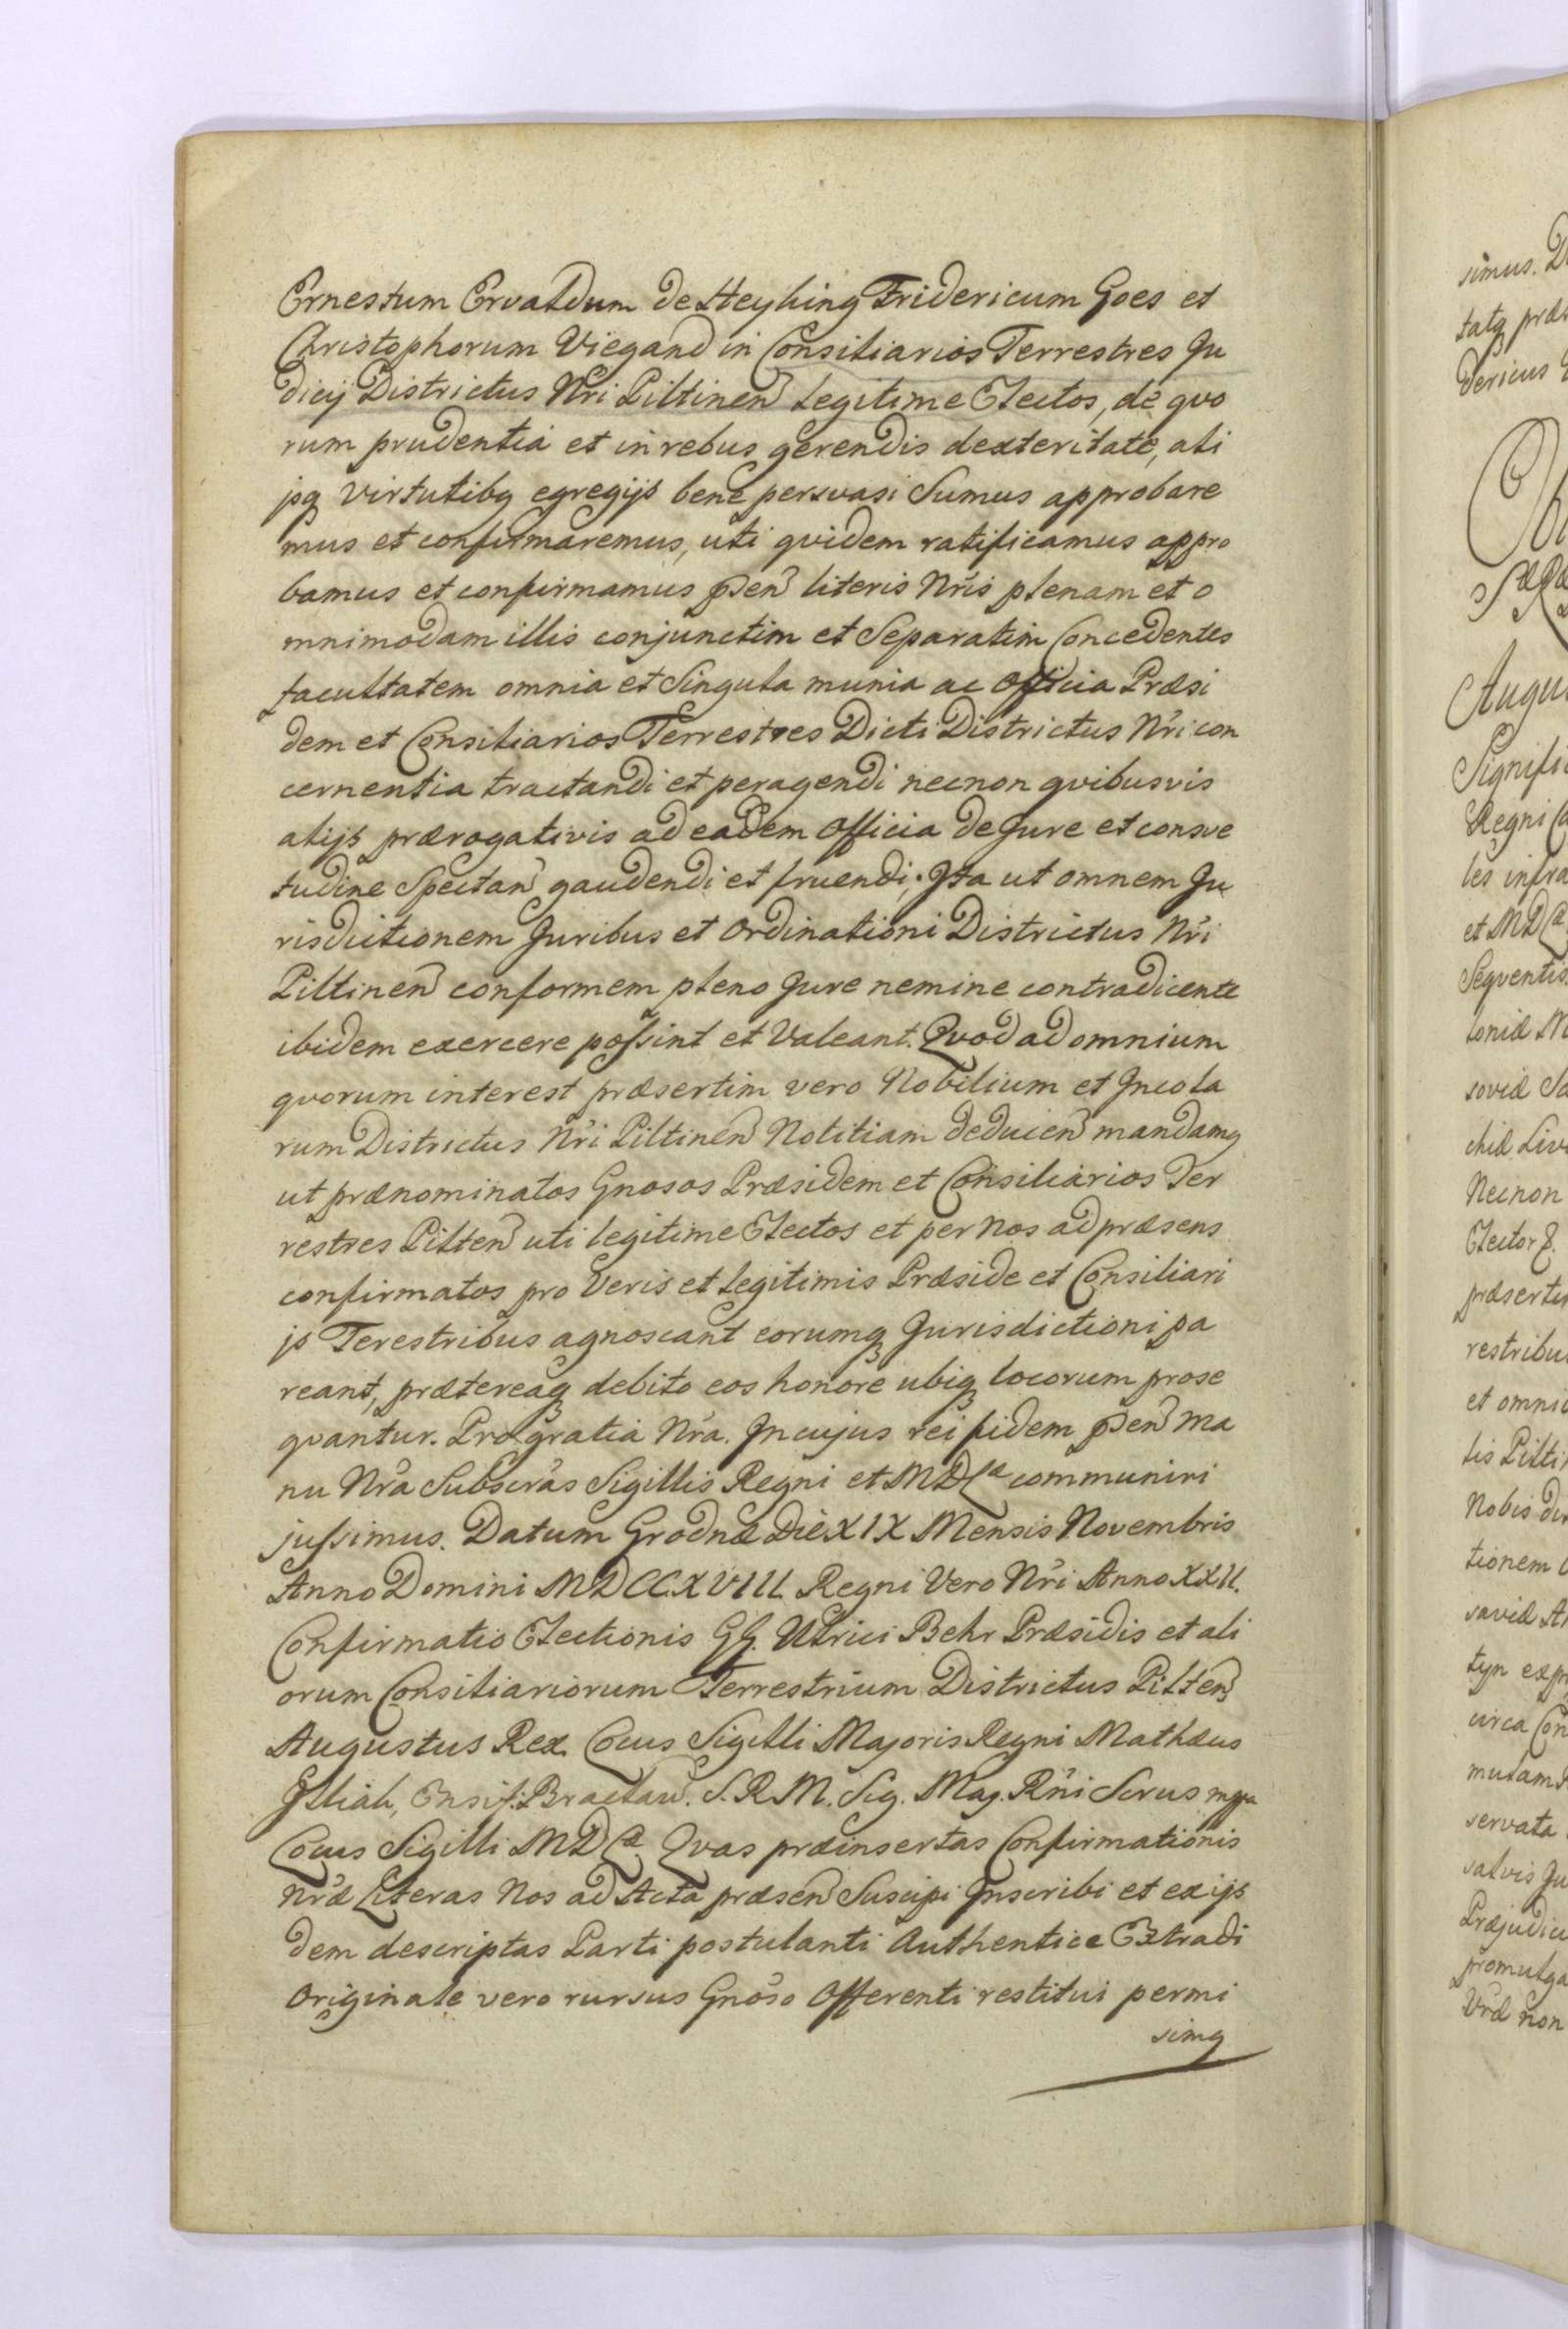 Ernestum Ervaldum de Heyking Fridericum Goes et
Christophorum Viegand in Consiliarios Terrestres Ju
dicij Districtus Nri Piltinen Legitime Electos, de quo
rum prudentia et in rebus gerendis dexteritate, ali
jsq virtutibq egregijs bene persvasi Sumus approbare
mus et confirmaremus, uti qvidem ratificamus appro
bamus et confirmamus pñsen literis Nris plenam et o
mnimodam illis conjunctim et Separatim Concedentes
facultatem omnia et Singula munia ac Officia Præsi
dem et Consiliarios Terrestres Dicti Districtus Nri con
cernentia tractandi et peragendi necnon qvibusvis
alijs prærogativis ad eadem Officia de Jure et consve
tudine Spectan gaudendi et fruendi; Jta ut omnem Ju
risdictionem Juribus et Ordinationi Districtus Nri
Piltinen conformem pleno Jure nemine contradicente
ibidem exercere possint et Valeant. Qvod ad omnium
qvorum interest præsertim vero Nobilium et Jncola
rum Districtus Nri Piltinen Notitiam deducen mandamq
ut prænominatos Gnosos Præsidem et Consiliarios Ter
restres Pilten uti legitime Electos et per Nos ad præsens
confirmatos pro Veris et Legitimis Præside et Consiliari
js Terestribus agnoscant eorumq Jurisdictioni pa
reant, prætereaq debito eos honore ubiq locorum prose
qvantur. Pro gratia Nra. Jn cujus rei fidem pñsen Ma
nu Nra Subscras Sigillis Regni et MDL communiri
jussimus. Datum Grodnæ Die XIX Mensis Novembris
Anno Domini MDCCXVIII. Regni Vero Nri Anno XXII.
Confirmatio Electionis GG. Ulrici Behr Præsidis et ali
orum Consiliariorum Terrestrium Districtus Pilten
Augustus Rex. Locus Sigilli Majoris Regni Mathæus
Ensif. Braclaw. S.R.M. Sig. Maj. Rni Scrus mpa
Locus Sigilli MDL Qvas præinsertas Confirmationis
Nræ Literas Nos ad Acta præsen Suscipi Jnscribi et ex ijs
dem descriptas Parti postulanti Authentice Extradi
Originale vero rursus Gnoso Offerenti restitui permi
simq
simus.
tatq
dericus
Augu
Signifi
Regni
les infra
et MDL
Seqventis
sovid
Necnon
Elector
præserti
restribu
et omni
tis Pilti
Nobis
tionem
circa Con
mutam
servata
salvis Ju
Præjudici
promulga
non